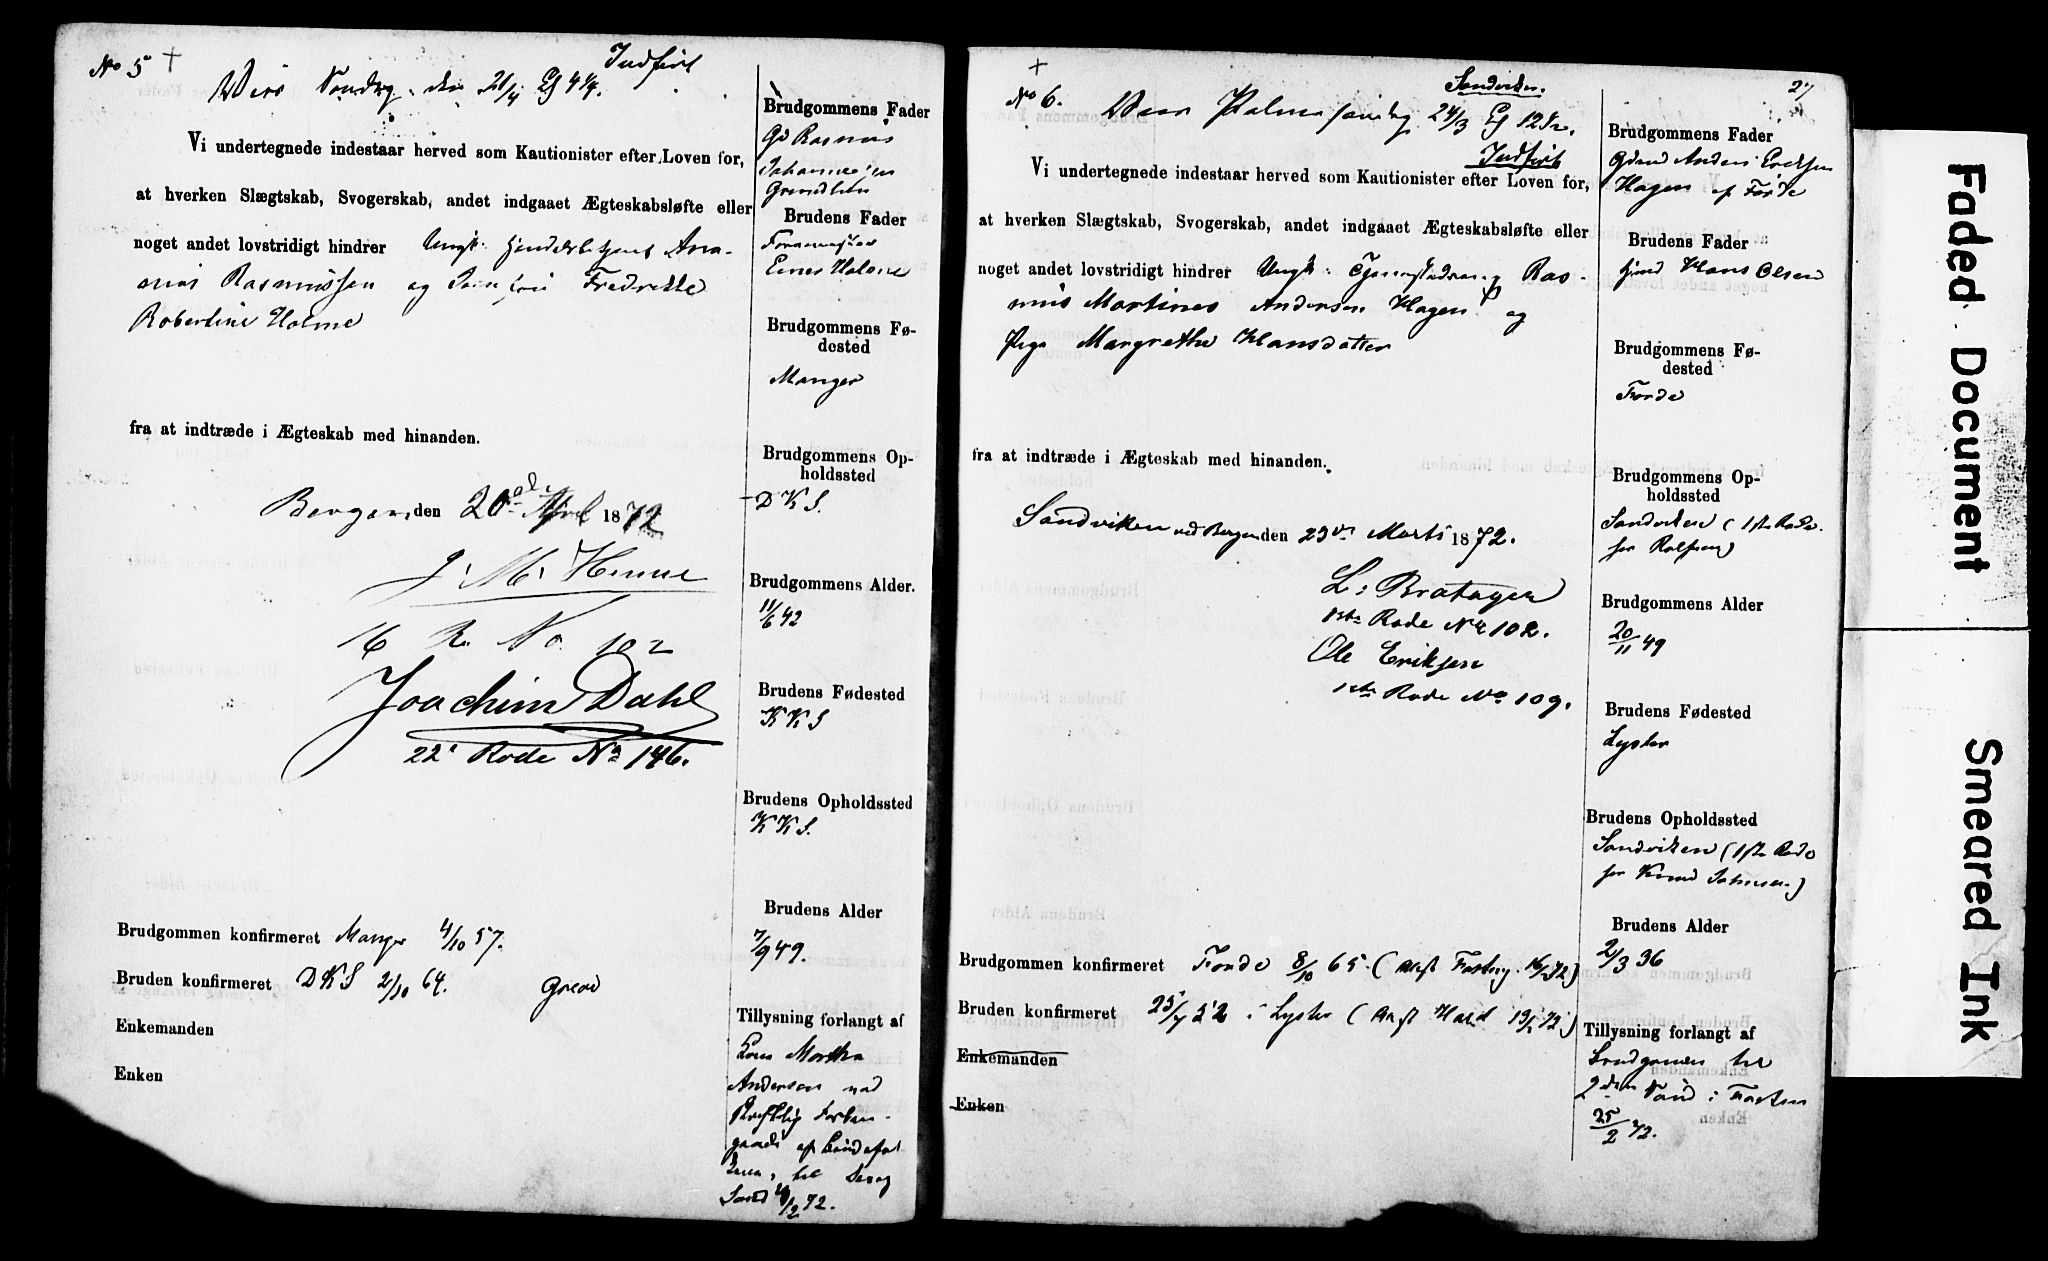 No 5 +
Indført
Vies Søndag den 21/4 Kl 4 1/4.
Vi undertegnede indestaar herved som Kautionister efter Loven for,
at hverken Slægtskab, Svogerskab, andet indgaaet Ægteskabsløfte eller
noget andet lovstridigt hindrer Ungk: Handelsbetjent Ana-
nias Rasmussen og Jomfru Fredrikke
Robertine Holme
fra at indtræde i Ægteskab med hinanden.
Bergen, den 20de April 1872
J. M. Henne
16 R. No 102
Joachim Dahl
22' Rode No 146.
Brudgommen konfirmeret Manger 4/10 57.
Bruden konfirmeret DKS 2/10 64. Greve
Enkemanden
Enken
Brudgommens Fader
Gd Rasmus
Johannesen
Brudens Fader
Ernes Holme
Brudgommens Fø-
dested
Manger
Brudgommens Op-
holdssted
DKS.
Brudgommens Alder.
11/6 42
Brudens Fødested
KKS
Brudens Opholdssted
KKS.
Brudens Alder
7/9 49.
Tillysning forlangt af
Martha
Andersen ved
skriftlig
af
til
Sønd 72.
+
No 6.
Sandviken.
27
Vies Palmesøndag 24/3 Kl 12
Indført
Vi undertegnede indestaar herved som Kautionister efter Loven for,
at hverken Slægtskab, Svogerskab, andet indgaaet Ægteskabsløfte eller
noget andet lovstridigt hindrer Ungk: Ras-
mus Martines Andersen Hagen og
Pige Margrethe Hansdatter
fra at indtræde i Ægteskab med hinanden.
Sandviken ved Bergen den 23de Marts 1872.
L: Bratager
1ste Rode No 102.
Ole Eriksen
1ste Rode No 109.
Brudgommen konfirmeret Førde 8/10 65. (
Bruden konfirmeret 25/7 52 i Lyster (
Enkemanden
Enken
Brudgommens Fader
Gdmd Anders Eriksen
Hagen af Førde
Brudens Fader
Hmd Hans Olsen
Brudgommens Fø-
dested
Førde
Brudgommens Op-
holdssted
Sandviken (1ste Rode
hos Rolfsen)
Brudgommens Alder
20/11 49
Brudens Fødested
Lyster
Brudens Opholdssted
Sandviken (1ste Rode
hos Knud Johnsen)
Brudens Alder
2/3 36
Tillysning forlangt af
Brudgommen til
2den Sønd i Fasten
25/2 72.
Faded Document
Smeared Ink